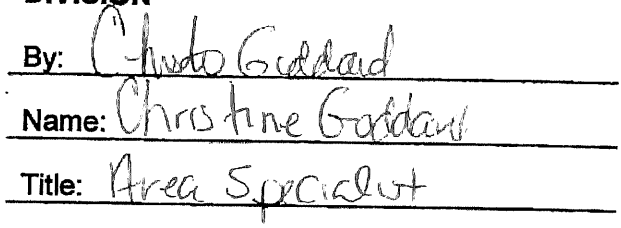 DIVISION
By: Goddard
Name: Christine Goddard
Title: Area Specialist